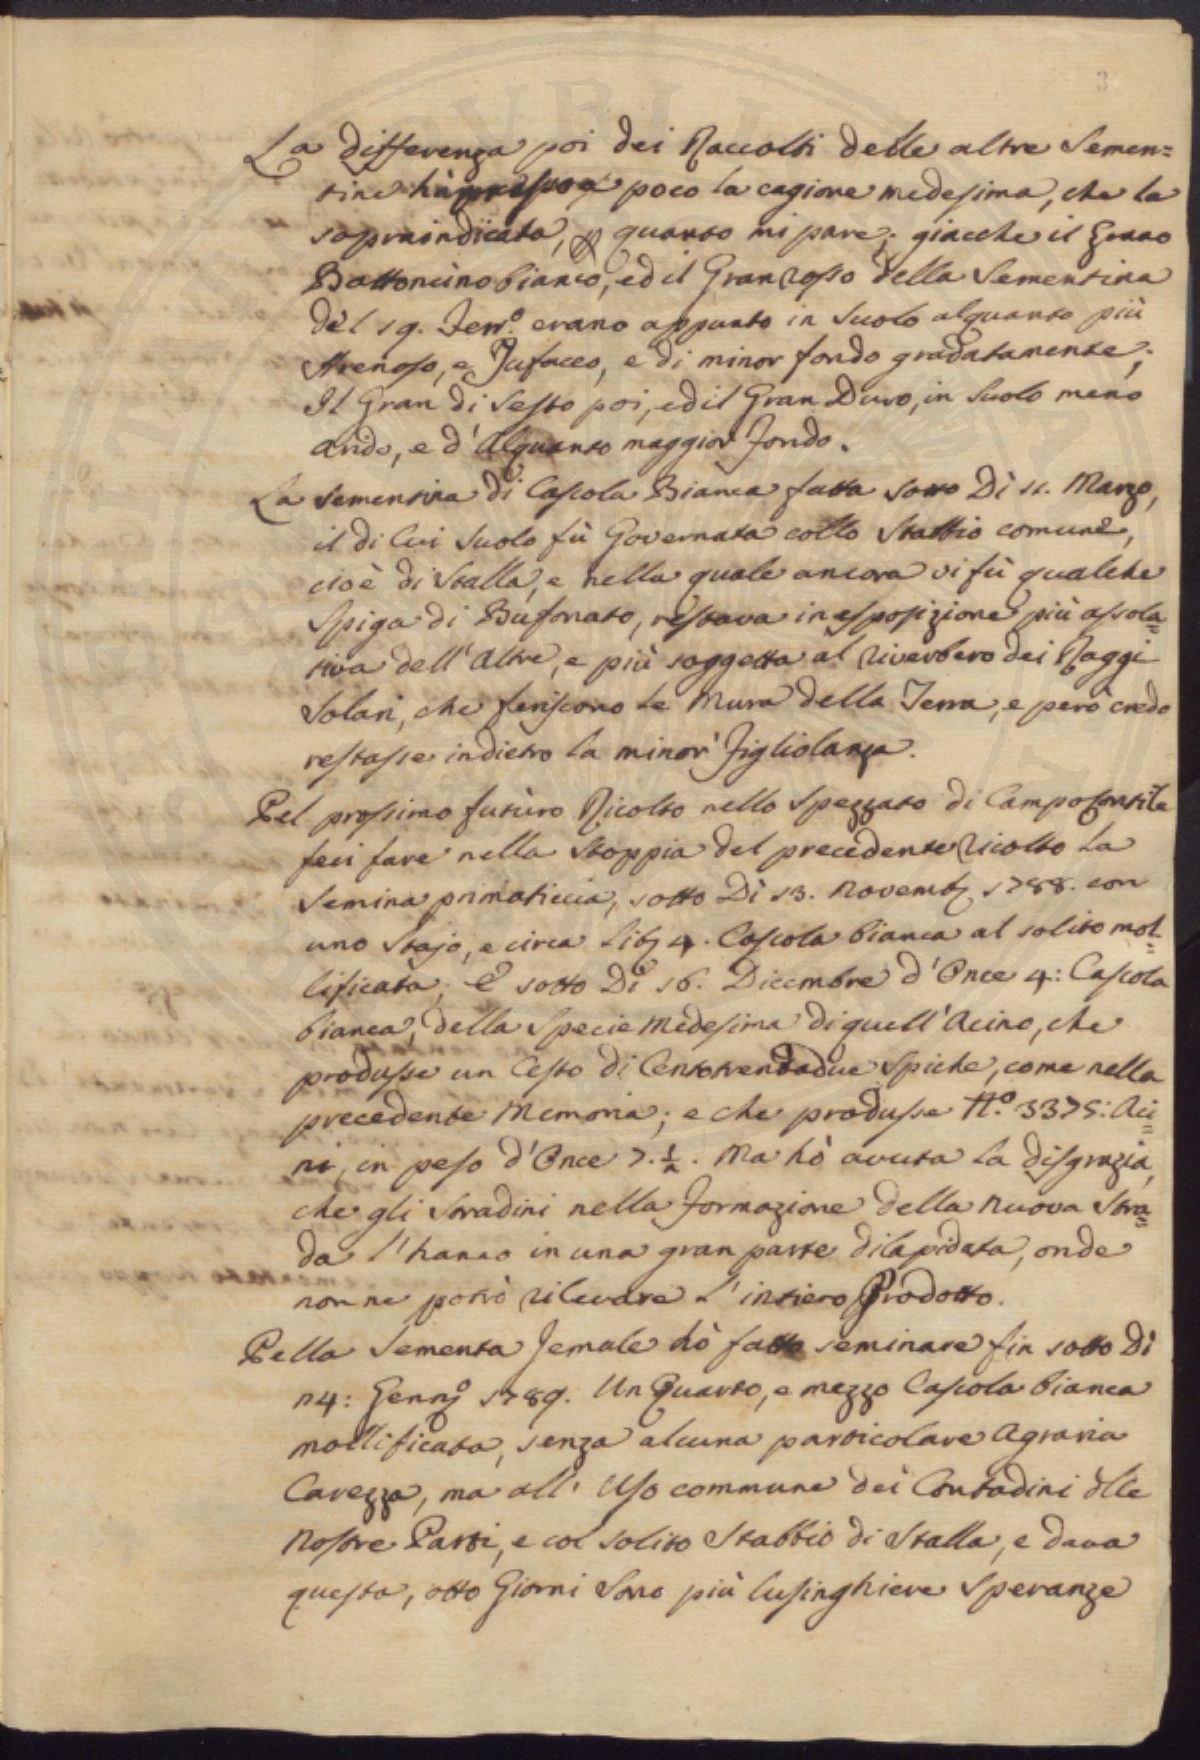 3
La differenza poi dei Raccolti delle altre Semen=
tine hà presso a poco la cagione medesima, che la
sopraindicata, p quanto mi pare; giacche il Grano
Bottoncino bianco, ed il Gran rosso della Sementina
del 19. Febr.º erano appunto in Suolo alquanto più
Arenoso, e Tufaceo, e di minor fondo gradatamente;
Il Gran di Sesto poi, ed il Gran Duro, in Suolo meno
arido, e d'Alquanto maggior fondo.
La Sementina di Cascola Bianca fatta sotto Dì 11. Marzo,
il di Cui Suolo fù Governata collo Stabbio comune,
cioè di Stalla, e nella quale ancora vi fù qualche
Spiga di Bufonato, restava in esposizione più assola=
tiva dell'Altre, e più soggetta al riverbero dei Raggi
Solari, che feriscono le Mura della Terra, e però credo
restasse indietro la minor Figliolanza.
Pel prossimo futùro Ricolto nello Spezzato di Campogontile
feci fare nella Stoppia del precedente ricolto la
Semina primaticcia, sotto Dì 13. Novemb. 1788. con
uno Stajo, e circa Lib 4. Cascola bianca al solito mol=
lificata; E sotto Dì 16. Dicembre d'Once 4: Cascola
bianca, della Specie Medesima di quell'Acino, che
produsse un Cesto di Centotrentadue Spiche, come nella
precedente Memoria; e che produsse N.º 3375: Aci=
ni, in peso d'Once 7. ½. Ma hò avuta la disgrazia,
che gli Stradini nella formazione della nuova Stra=
da l'hanno in una gran parte dilapidata, onde
non ne potrò rilevare l'intiero Prodotto.
Pella Sementa Jemale hò fatto seminare fin sotto Dì
14: Genn.º 1789. Un Quarto, e mezzo Cascola bianca
mollificata, senza alcuna particolare Agraria
Carezza, ma all'Uso commune dei Contadini dlle
Nostre Parti, e col solito Stabbio di Stalla, e dava
questa, otto Giorni Sono più lusinghiere Speranze